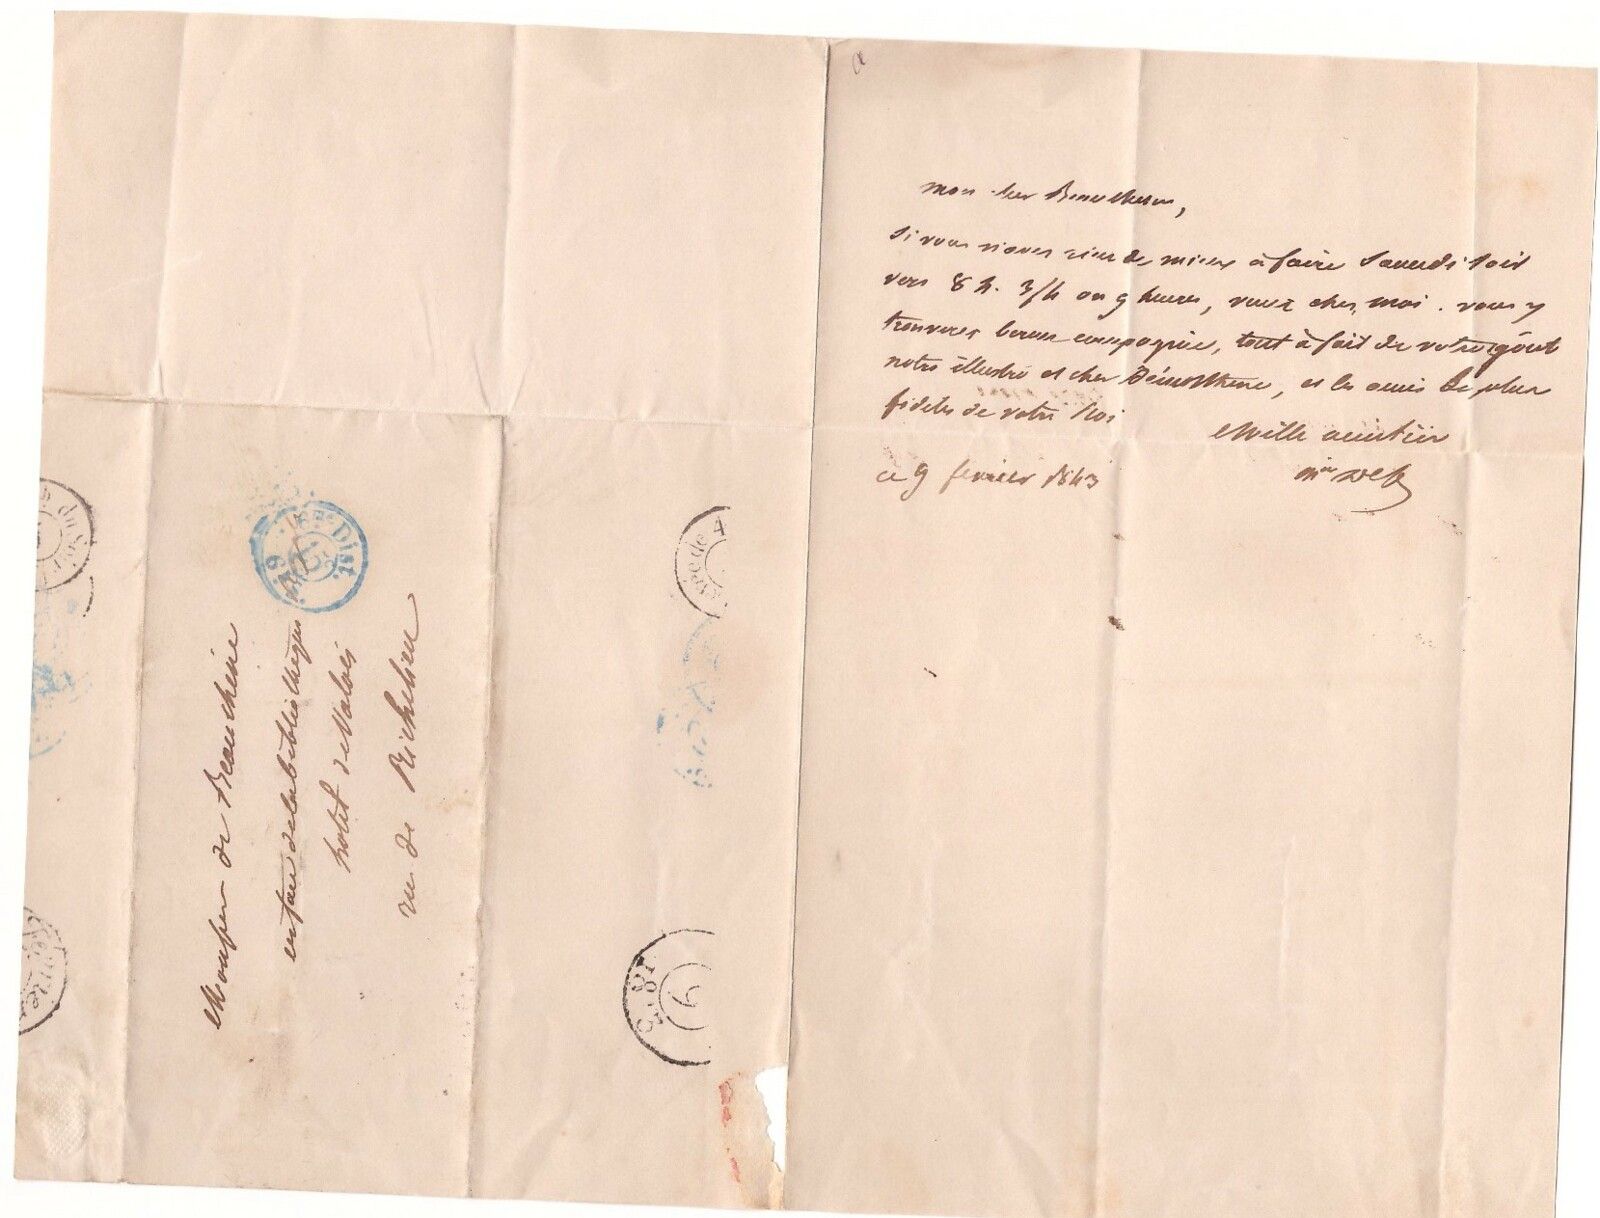 mon cher Beauchesne,
si vous n'avez rien de mieux à faire Samedi soir
vers 8 h. 3/4 ou 9 heures, venez chez moi. vous y
trouverez bonne compagnie, tout à fait de votre goût
notre illustre et cher Démosthene, et les amis les plus
fideles de votre Roi
Mille amitiés
ce 9 fevrier 1843
Monsieur de Beauchêne
en face de la bibliotheque
hotel de Valois
rue de Richelieu
Dist.
15
9
18